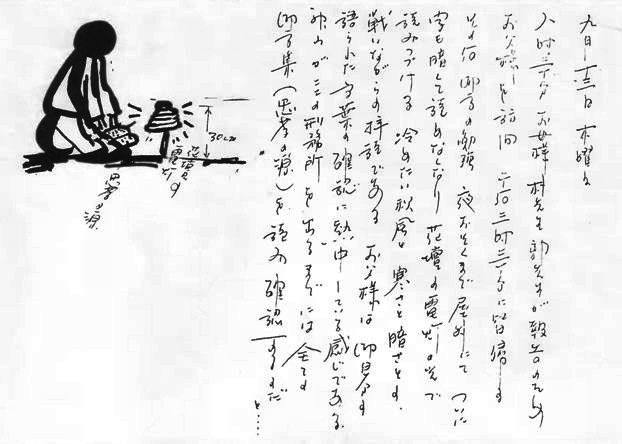 九月十三日 木曜日
八時三十分 お母様 村先生 郭先生が報告のため
お父様を訪問 午后三時三十分に皆帰る
その后 御言の勉強 夜おそくまで屋外にて ついに
字も暗くて読めなくなり 花壇の電灯の光で
読みつづける 冷めたい秋風と 寒さと暗さとの
戦いながらの拝読である お父様は 御自分の
語られた言葉の確認に熱中している感じである
初めがこの刑務所を出るまでには 全ての
御言集(忠孝の源)を読み 確認するのだ
と……
30cm
花壇の
電灯
忠孝の源